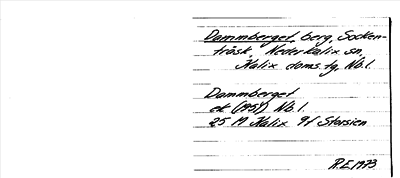 Dammberget, berg, Socken-
träsk, Nederkalix sn,
Kalix doms.fg, Nb.l.
Dammberget
ek (1951) Nb.l.
25 M Kalix 9f Storsien
R.E 1973